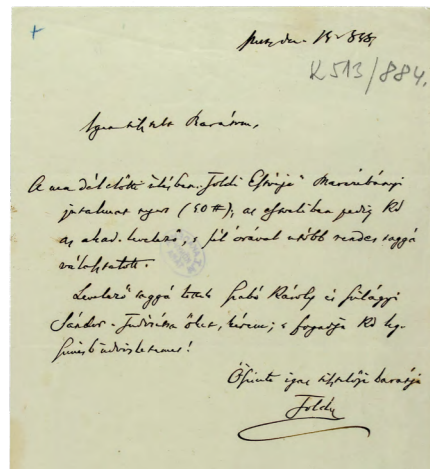 K 513/884.
Igen tisztelt Barátom,
A ma délelőtti ülésben „Toldi Estvéje” Marczibányi
jutalmat nyert (50 #), az estveliben pedig Kd
az akad. levelező, s fél órával utóbb rendes taggá
választatott.
Levelező taggá lettek Szabó Károly és Szilágyi
Sándor. Tudósítsa őket, kérem; s fogadja Kd leg-
szívesb üdvözletemet!
Őszinte igaz tisztelője barátja
Toldy